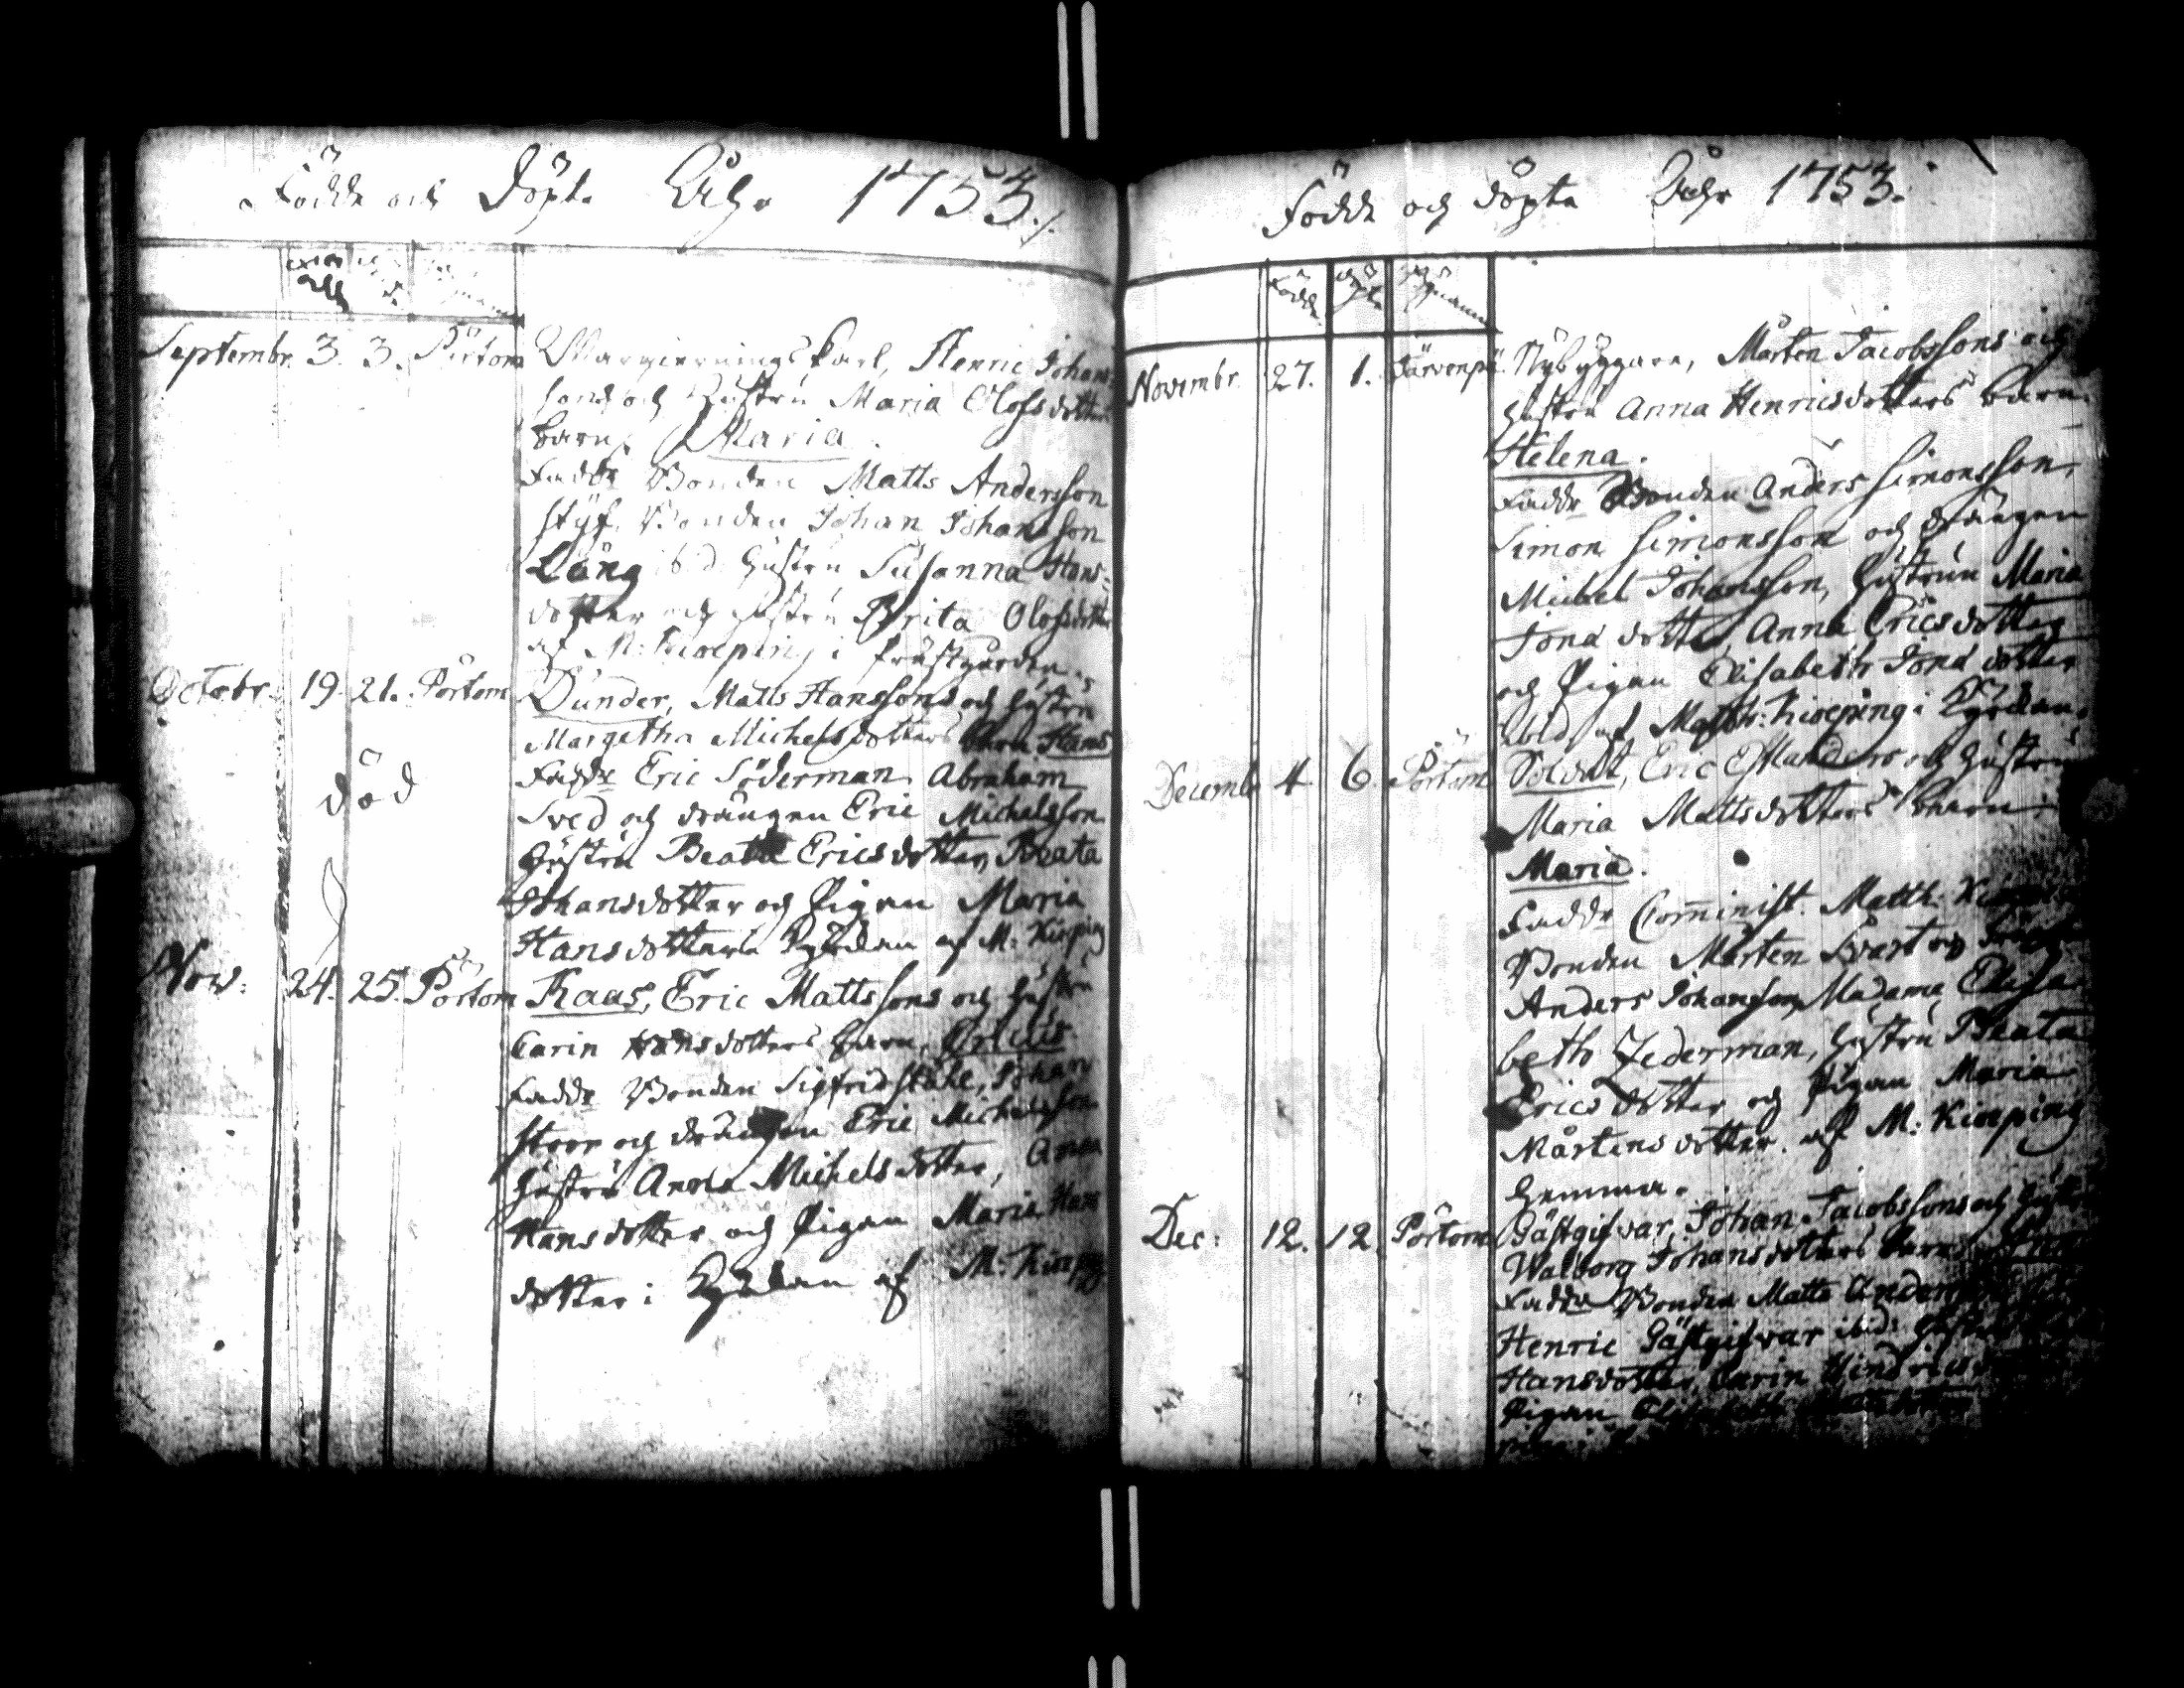 Födde och Döpte Åhr 1753./.
Septembr. 3. 3. Pörtom Wargierningskarl, Henric Johans
sons och Hustru Maria Olofsdotters
barn Maria.
Faddr Bonden Matts Andersson
Styf. Bonden Johan Johansson
Lång ibd. Hustru Susanna Hans-
dotter och Hustru Brita Olofsdotter
af M: Kioeping i prästgården.
Octobr. 19. 21. Pörtom Dunder, Matts Hanssons och Hustru
Margetha Michelsdotters barn Hans
Faddr Eric Söderman, Abraham
död
Sved och drängen Eric Michelsson
Hustru Beata Ericsdotter, Beata
Johansdotter och Pigan Maria
Hansdotter i Kyrkan af M: Kioeping
Nov: 24. 25. Pörtom Kaas, Eric Mattssons och Hustru
Carin Hansdotters barn, Ericus
Faddr Bonden Sigfrid Ståhl, Johan
Stoor och drängen Eric Michelsson
Hustru Anna Michelsdotter, Anna
Hansdotter och Pigan Maria Hans
dotter i Kyrkan af M: Kioeping
Födde och döpte Åhr 1753.
Födde döpte
Novembr. 27. 1. Järvenpä. Nybyggare, Mårten Jacobssons och
Hustru Anna Henricsdotters barn
Helena.
Faddr Bonden Anders Simonsson,
Simon Simonsson och drängen
Michel Johansson, Hustrun Maria
Jonä dotter, Anna Ericsdotter
och Pigan Elisabeth Jonä dotter
ibid af Matth: Kioeping i Kyrkan.
Decembr 4 6. Pörtom Soldat, Eric Esmanders och Hustru
Maria Mattsdotters barn
Maria.
Faddr Comminist. Matth. Kioep
Bonden Mårten Svart och
Anders Johansson, Madame Elisa
beth Zederman, Hustru Beata
Ericsdotter och Pigan Maria
Mårtensdotter. af M: Kioeping
hemma.
Dec: 12. 12. Pörtom Gästgifvar, Johan Jacobssons och
Walborg Johansdotters barn
Faddr Bonden Matts
Henric Gästgifvar ibid: Hustru
Hansdotter, Carin Hindrics
Pigan Elisabeth